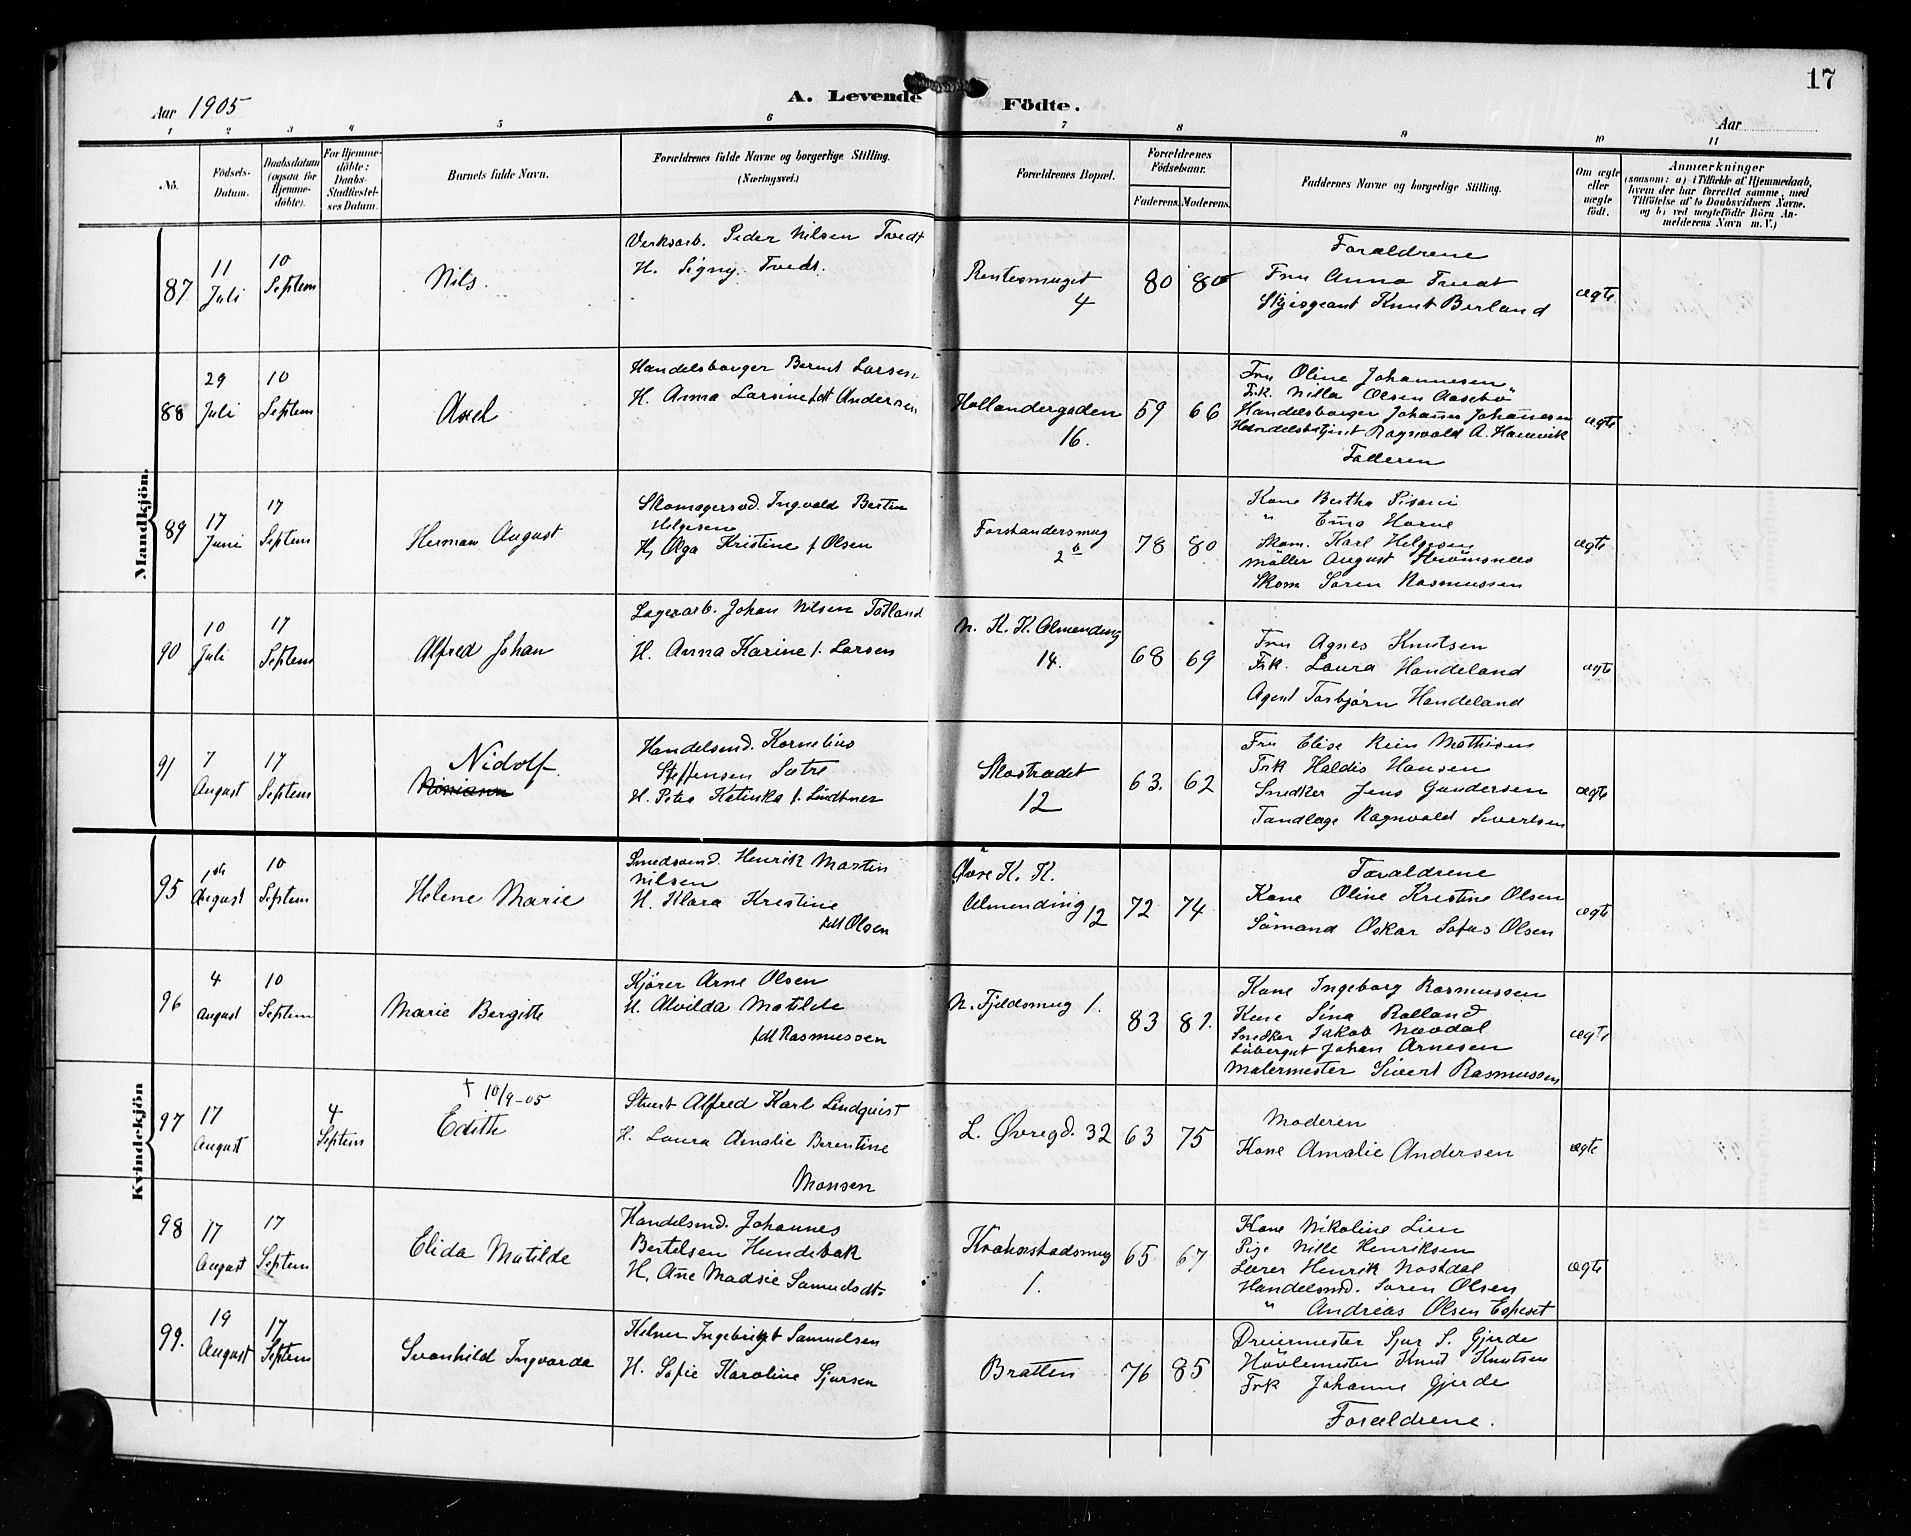 17
Aar 1905
A. Levende Födte.
Aar
1 2 3 4 5 6 7 8 9 10 11
No.
Födsels-Datum.
Daabsdatum (ogsaa for Hjemme-döbte).
For Hjemme-döbte: Daabs-Stadfæstel-ses Datum.
Barnets fulde Navn.
Forældrenes fulde Navne og borgerlige Stilling. (Næringsvei.)
Forældrenes Bopæl.
Forældrenes Födselsaar.
Faderens. Moderens.
Faddernes Navne og borgerlige Stilling.
Om ægte eller uægte födt.
Anmærkninger
(saasom: a) i Tilfælde af Hjemmedaab, hvem der har forrettet samme, med Tilföielse af to Daabsvidners Navne. og b) ved uægtefödte Börn An-melderens Navn m. V.)
Mandkjön.
87 11 Juli 10 Septem Nils.
Verksarb. Peder Nilsen Tvedt
H. Signy Tvedt.
Rentesmuget 4
80 80
Forældrene
Fru Anna Tvedt
Knut Berland
ægte
88 29 Juli 10 Septem Axel
Handelsborger Bernt Larsen
H. Anna Larsine født Andersen
Hollendergaden 16.
59 66
Fru Oline Johannesen
Frk. Nilla Olsen Aasebø
Handelsborger Johannes Johannesen
Handelsbetjent Ragnvald A. Hanevik
Faderen
ægte
89 17 Juni 17 Septem Herman August
Skomagersvd. Ingvald Bertin
Helgesen
H. Olga Kristine f. Olsen
Forstandersmug 2b
78 80
Kone Bertha Pisani
" Emma Horne
Skom. Karl Helgesen
Møller August Strømsnes
Skom Søren Rasmussen
ægte
90 10 Juli 17 Septem Alfred Johan
Lagerarb. Johan Nilsen Totland
H. Anna Karine f. Larsen
N. K. K. Almending 14.
68 69
Fru Agnes Knutsen
Frk. Laura Handeland
Agent Torbjørn Handeland
ægte
91 7 August 17 Septem Nidolf
Handelsmd. Kornelius
Steffensen Sætre
H. Petra Katinka f. Lindtner
Skostrædet 12
63. 62
Fru Elise Rein Mathisen
Frk Haldis Hansen
Snedker Jens Gundersen
Tandlæge Ragnvald Sivertsen
ægte
Kvindekjön
95 1ste August 10 Septem Helene Marie
Smedsvend. Henrik Martin
Nilsen
H. Klara Kristine
født Olsen
Øvre K. K.
Almending 12
72 74
Forældrene
Kone Oline Kristine Olsen
Sømand Oskar Sofus Olsen
ægte
96 4 August 10 Septem Marie Bergitte
Kjører Arne Olsen
H. Alvilda Matilde
født Rasmussen
N. Fjeldsmug 1.
83 81.
Kone Ingeborg Rasmussen
Kone Sina Rolland
Snedker Jakob Nævdal
Johan Arnesen
Malermester Sivert Rasmussen
ægte
97 17 August 4 Septem
† 10/9-05
Edith
Stuert Alfred Karl Lindqvist
H. Laura Amalie Berentine
Monsen
L. Øvregd. 32
63 75
Moderen
Kone Amalie Andersen
ægte
98 17 August 17 Septem Elida Matilde
Handelsmd. Johannes
Bertelsen Hundebak
H. Ane Madsie Samuelsdt.
Krohnstadsmug 1.
65 67
Kone Nikoline Lien
Pige Nille Henriksen
Lærer Henrik Nostdal
Handelsmd. Søren Olsen
" Andreas Olsen Espeset
ægte
99. 19 August 17 Septem Svanhild Ingvarda
Kelner Ingebrigt Samuelsen
H. Sofie Karoline Sjursen
Bratten
76 85
Dreiermester Sjur S. Gjerde
Høvlemester Knut Knutsen
Frk Johanne Gjerde
Forældrene.